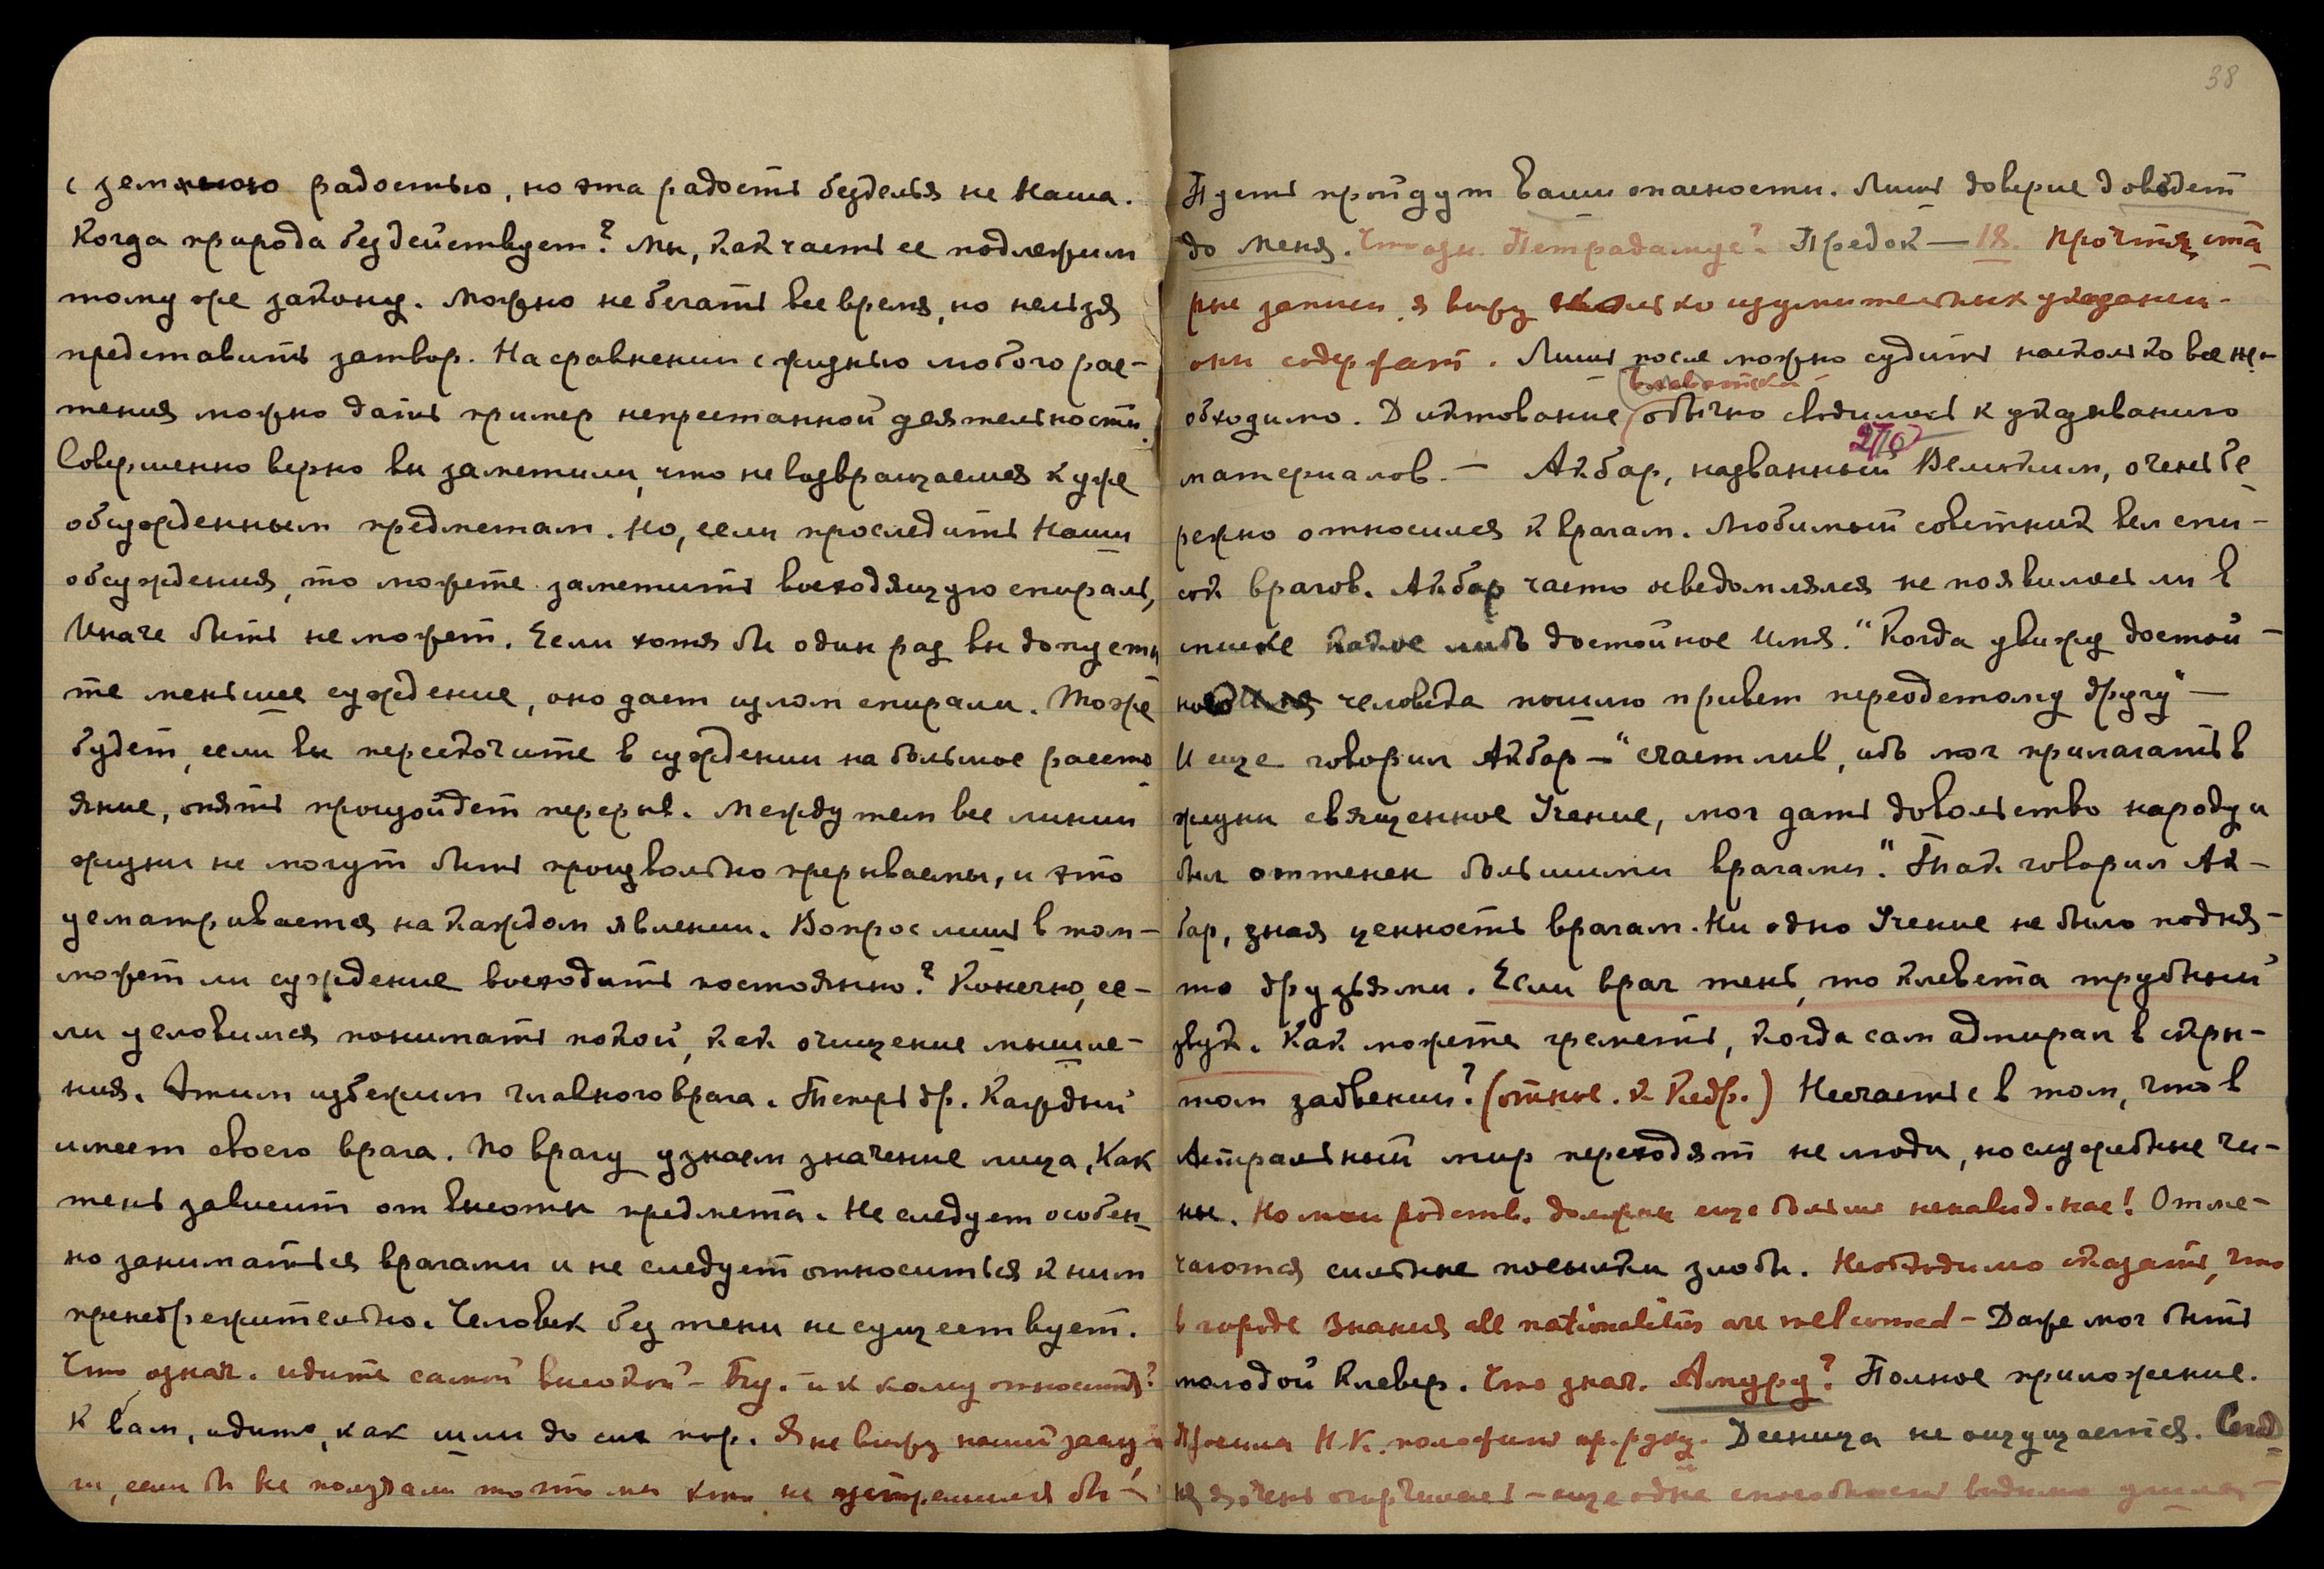 с земною радостью, но эта радость безделья не Наша.
Когда природа бездействует? Мы, как часть ее подлежим
тому же закону. Можно не бегать все время, но нельзя
представить затвор. На сравнении с жизнью любого рас-
тения можно дать пример непрестанной деятельности.
Совершенно верно вы заметили, что не возвращаемся к уже
обсужденным предметам. Но, если проследить Наши
обсуждения, то можете заметить восходящую спираль,
Иначе быть не может. Если хотя бы один раз вы допусти
те меньшее суждение, оно дает излом спирали. Тоже
будет, если вы перескочите в суждении на большое рассто
яние, опять произойдет перерыв. Между тем все линии
жизни не могут быть произвольно прерываемы, и это
усматривается на каждом явлении. Вопрос лишь в том-
может ли суждение восходить постоянно? Конечно, ес-
ли условимся понимать покой, как очищение мышле-
ния. Этим избежим главного врага. Теперь др. Каждый
имеет своего врага. По врагу узнаем значение лица, Как
тень зависит от высоты предмета. Не следует особен
но заниматься врагами и не следует относиться к ним
пренебрежительно. Человек без тени не существует.
Что означ. идите самой высокой - и к кому относится?
К вам, идите, как шли до сих пор. Я не вижу нашей заслу
ги, если бы все получали то что мы кто не устремился бы
38
Пусть пройдут ваши опасности. Лишь доверие доведет
до меня. Предок — 18. Прочтя ста
рые записи, я вижу сколько изумительных указаний
они содержат. Лишь после можно судить насколько все не-
Блаватской
обходимо. Диктование обычно сводилось к указыванию
270
материалов. — Акбар, названный Великим, очень бе
режно относился к врагам. Любимый советник вел спи-
сок врагов. Акбар часто осведомлялся не появилось ли в
списке какое либо достойное Имя. "Когда увижу достой-
ного человека пошлю привет переодетому другу" —
И еще говорил Акбар — "счастлив, ибо мог прилагать в
жизни священное Учение, мог дать довольство народу и
был оттенен большими врагами." Так говорил Ак-
бар, зная ценность врагам. Ни одно Учение не было подня-
то друзьями. Если враг тень, то клевета трубный
звук. Как можете греметь, когда сам адмирал в скры-
том забвении? (относ. к Кедр.) Несчастье в том, что в
Астральный мир переходят не люди, но служебные чи-
ны. Но мои родств. должны еще больше ненавид. нас! Отме-
чаются сильные посылки злобы. Необходимо сказать, что
в городе Знания all nationalities are welcomed - Даже мог быть
молодой Клевер. Что знач. Амуру? Полное приложение.
Н.К. положить пр. руку. Десница не ощущается.
я очень огорчилась - еще одна способность видимо